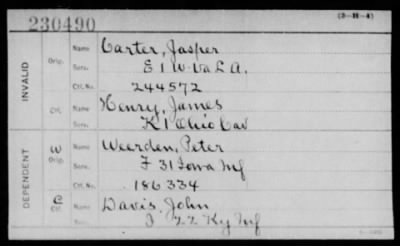 230490
(3-H-4)
INVALID
Orig.
Name Carter, Jasper
Serv. E 1 W-Va L A.
Ctf. No. 244572
Ctf.
Name Henry, James
Serv. K 1 Ohio Cav
DEPENDENT
W
Orig.
Name Weerden, Peter
Serv. F 31 Iowa Inf
Ctf. No. 186334
C
Ctf.
Name Davis, John
Serv. I 22 Ky Inf